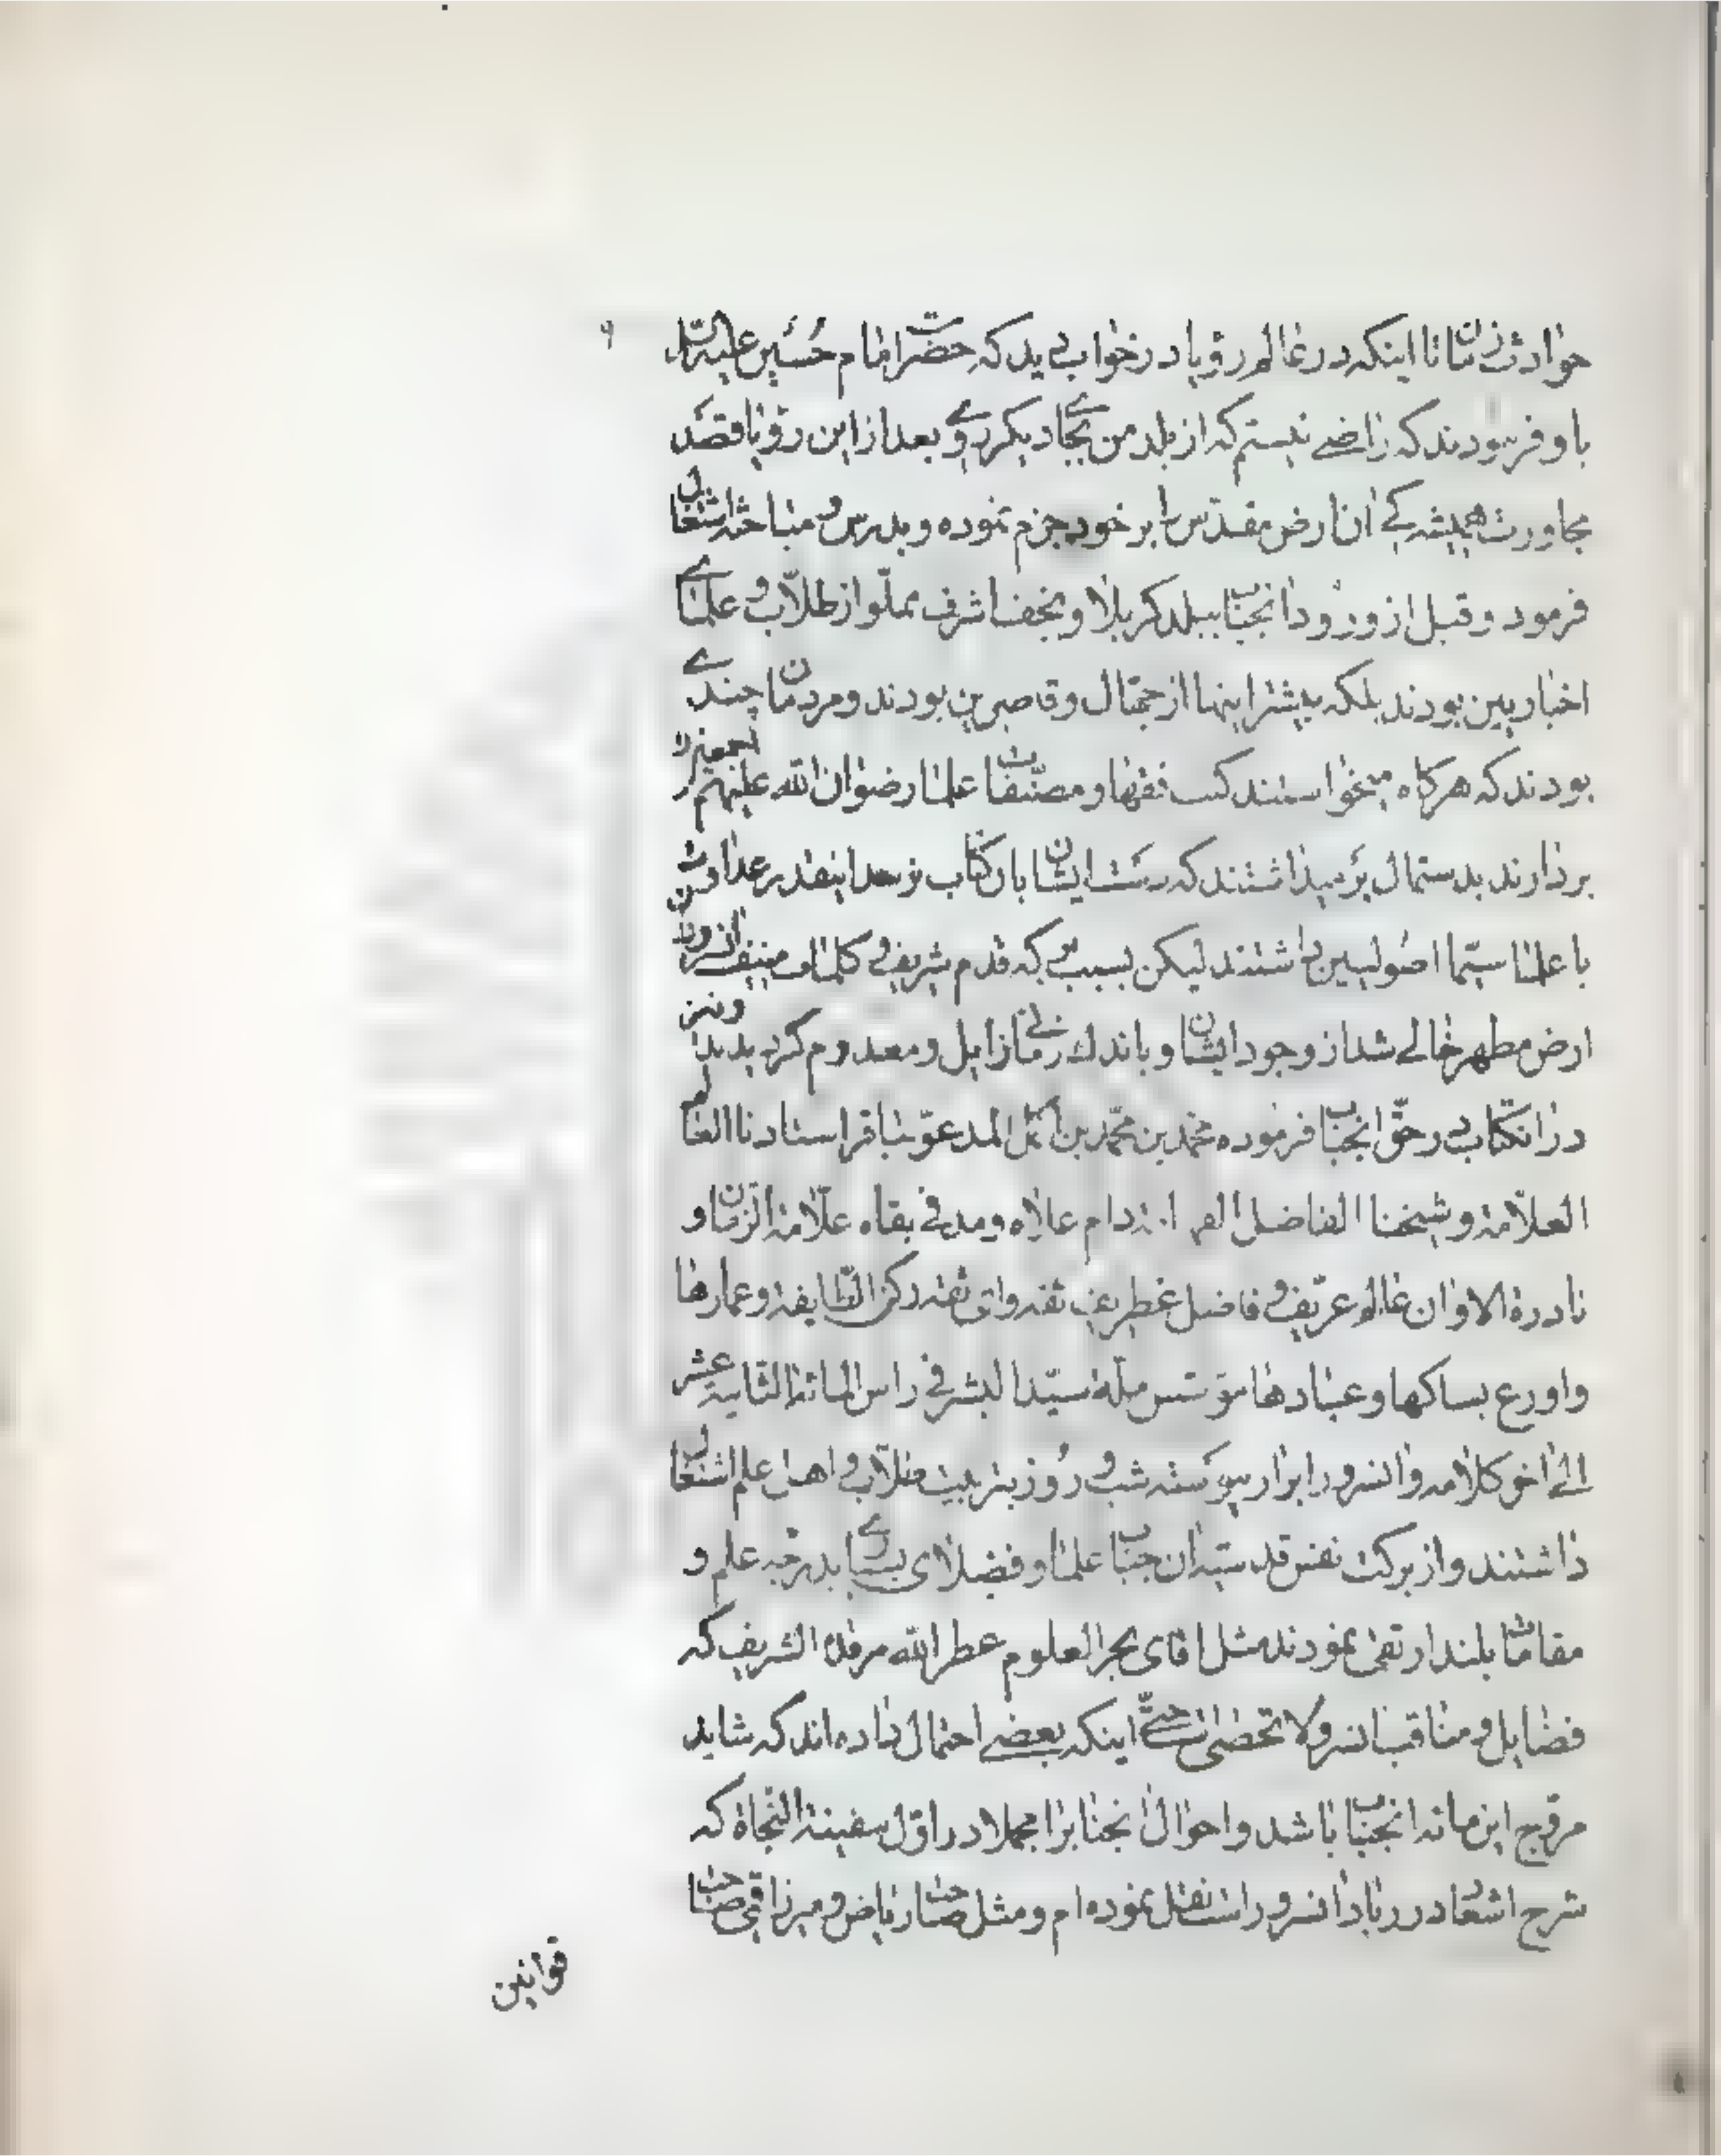 حوادث زمان تا اینکه در عالم رؤیا در خواب دید که حضرت امام حسین علیه السلام
باو فرمودند که راضی نیستم که از بلد من بجای دیگر روی و بعد از این رؤیا قصد
مجاورت همیشه کی ان ارض مقدس را بر خود جزم نموده و بدرس و مباحثه اشتغال
فرمود و قبل از ورود انجناب ببلد کربلا و نجف اشرف مملو از طلاب و علمای
اخباریین بودند بلکه بیشتر اینها از جهال و قاصرین بودند و مردمان چندی
بودند که هرکاه میخواستند کتب فقها و مصنفات علما رضوان الله علیهم اجمعین را
بردارند بدستمال بر میداشتند که دست ایشان بان کتاب نرسد اینقدر عداوت
با علما سیما اصولیین داشتند لیکن بسبب که قدم شریف و کلمات منیف انسرور
ارض مطهر خالی شد از وجود ایشان و باندک زمانی زایل و معدوم کردیدند و نیز
در انکتاب در حق انجناب فرموده محمد بن محمد بن اکمل المدعو بباقر استادنا العالم
العلامة و شیخنا الفاضل دام علاه و مد فی بقاه علامة الزمان و
نادرة الاوان عالم عریف و فاضل غطریف ثقه وای ثقه رکن الطایفة و عمادها
و اورع نساکها و عبادها مؤسس ملة سید البشر فی راس المائة الثانیة عشر
الی اخر کلامه و انسرور ابرار پیوسته شب و روز بتربیت طلاب و اهل علم اشتغال
داشتند و از برکت نفس قدسیه ان جناب علما و فضلای بسیاری بدرجه علم و
مقامات بلند ارتقی نمودند مثل اقای بحر العلوم عطر الله مرقده الشریف که
فضایل و مناقب انسرور لا تحصی است حتی اینکه بعضی احتمال داده اند که شاید
مروج این مائه انجناب باشد و احوال انجناب را مجملا در اول سفینة النجاة که
شرح اشعار درر بار انسرور است نقل نموده ام و مثل صاحب ریاض و میرزا قمی صاحب
قوانین